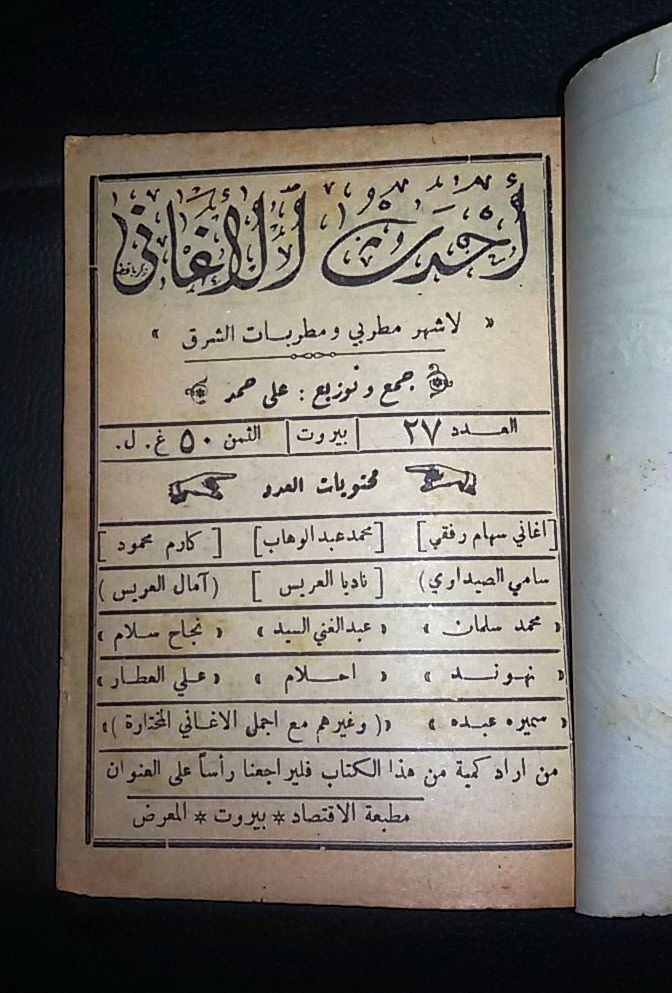 أحدث الأغاني
« لاشهر مطربي ومطربات الشرق »
جمع وتوزيع : علي حمد
العدد ٢٧ | بيروت | الثمن ٥٠ غ. ل.
محتويات العدد
[اغاني سهام رفقي] [محمد عبد الوهاب] [كارم محمود]
سامي الصيداوي) [ناديا العريس] (آمال العريس)
« محمد سلمان » « عبد الغني السيد » « نجاح سلام »
« نهوند » « احلام » « علي العطار »
« سميره عبده » «( وغيرهم مع اجمل الاغاني المختارة )»
من اراد كمية من هذا الكتاب فليراجعنا رأساً على العنوان
مطبعة الاقتصاد * بيروت * المعرض